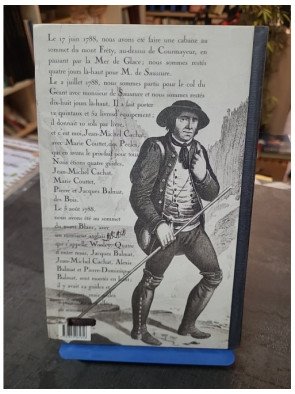 Le 17 juin 1788, nous avons été faire une cabane au
sommet du mont Fréty, au-dessus de Courmayeur, en
passant par la Mer de Glace; nous sommes restés
quatre jours là-haut pour M. de Saussure.
Le 2 juillet 1788, nous sommes partis pour le col du
Géant avec monsieur de Saussure et nous sommes restés
dix-huit jours là-haut. Il a fait porter
12 quintaux et 82 livres d'équipement;
il donnait 10 sols par livre,
et c'est moi, Jean-Michel Cachat,
avec Marie Couttet, des Pècles,
qui en avons le prix-fait pour tous.
Nous étions quatre guides,
Jean-Michel Cachat,
Marie Couttet,
Pierre et Jacques Balmat,
des Bois.
Le 5 août 1788,
nous avons été au sommet
du mont Blanc, avec
un monsieur anglais
qui s'appelle Woodley. Quatre
d'entre nous, Jacques Balmat,
Jean-Michel Cachat, Alexis
Balmat et Pierre-Dominique
Balmat, sont montés en haut;
il y avait 22 guides et